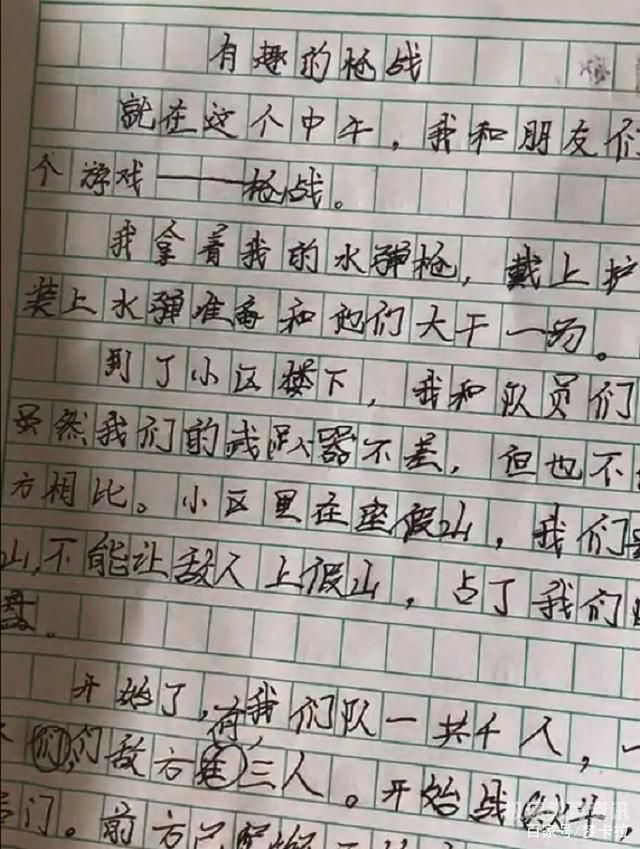 有趣的枪战
就在这个中午，我和朋友们
个游戏——枪战。
我拿着我的水弹枪，戴上护
装上水弹准备和他们大干一场。
到了小区楼下，我和队员们
虽然我们的武器不差，但也不
方相比。小区里在座假山，我们
山，不能让敌人上假山，占了我们
盘。
开始了，有我们队一共千人，一
们们敌方在三人。开始战斗，
门。前方
百家号/梦卡拉